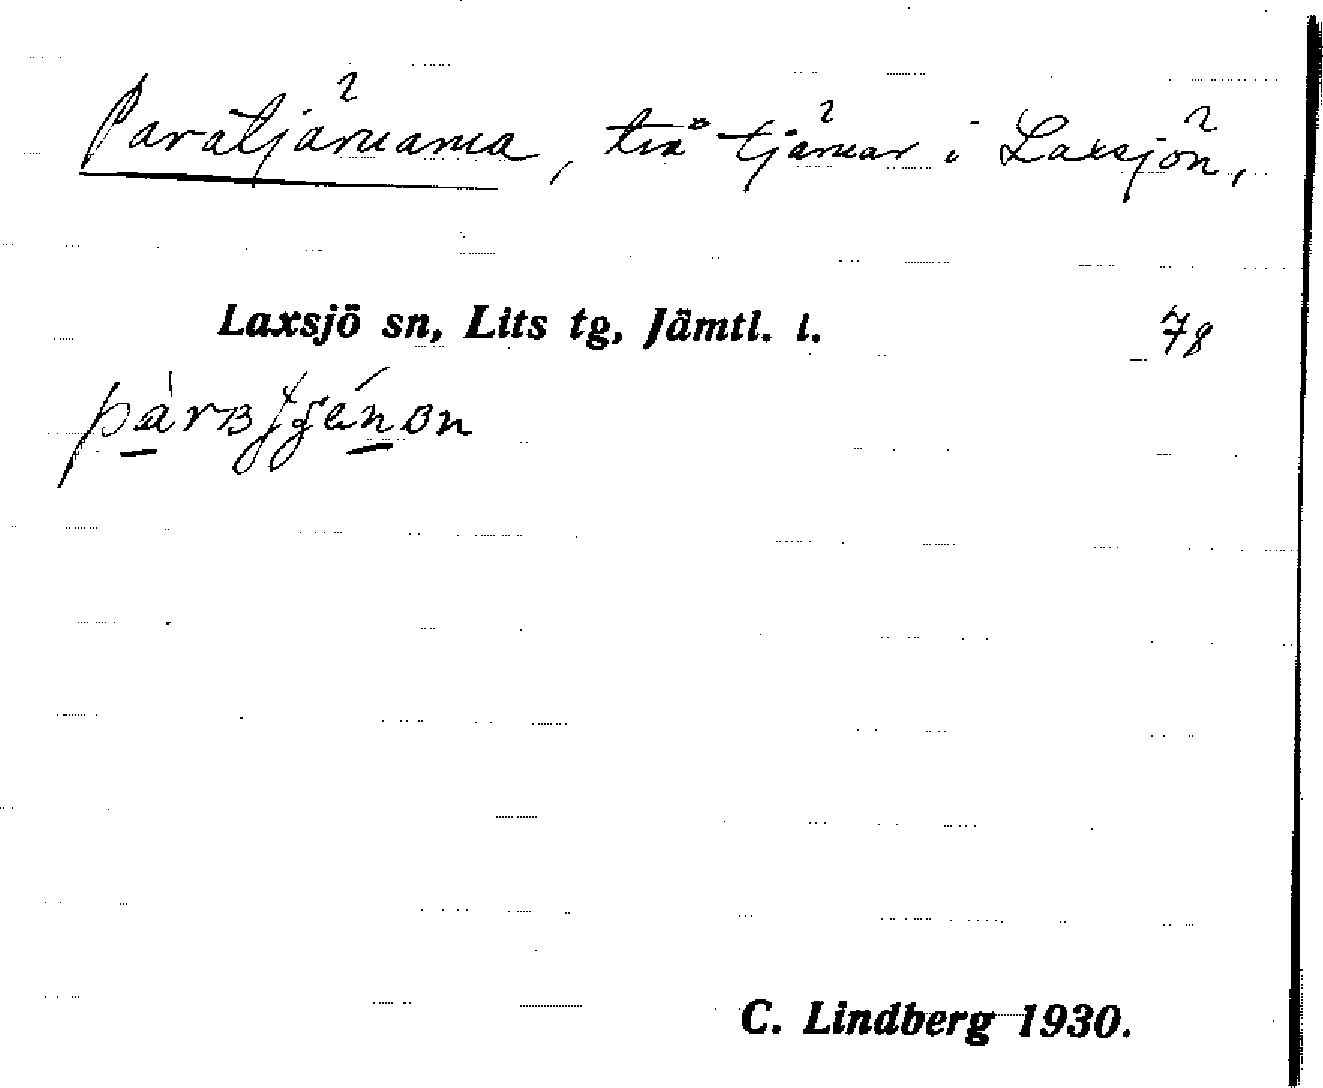 Paratjärnarna, två tjärnar i Laxsjön,
Laxsjö sn, Lits tg, Jämtl. l.
78
C. Lindberg 1930.